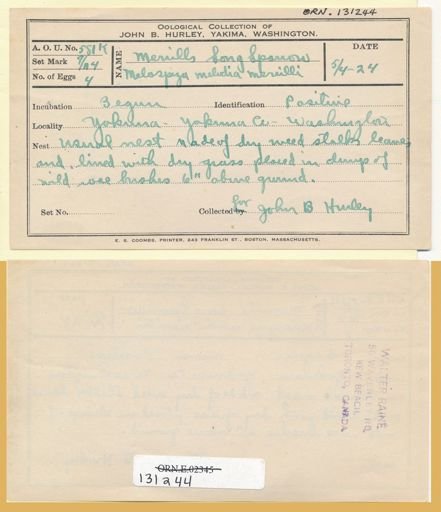 ORN. 131244
OOLOGICAL COLLECTION OF
JOHN B. HURLEY, YAKIMA, WASHINGTON.
A. O. U. No. 581K
Set Mark 7/24
No. of Eggs 4
NAME
Merrills Song Sparrow
Melospiza melodia merrilli
DATE
5/4-24
Incubation Begun Identification Positive
Locality Yakima - Yakima Co - Washington
Nest Usual nest made of dry weed stalks leaves
and lined with dry grass placed in clumps of
wild rose bushes 6" above ground.
Set No. Collected by for John B Hurley
E. E. COOMBS, PRINTER, 243 FRANKLIN ST., BOSTON, MASSACHUSETTS.
WALTER RAINE
KEW BEACH
TORONTO, CANADA
ORN.E.02345
131244